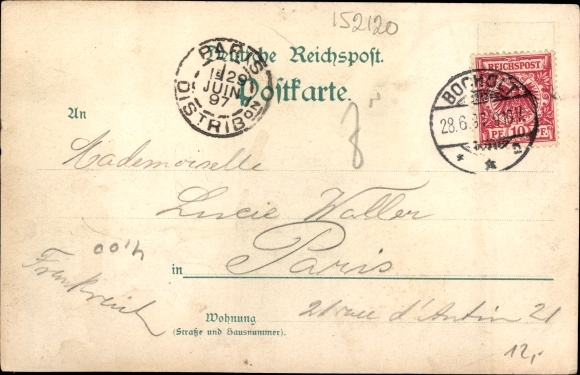 152120
Deutsche Reichspost.
Postkarte.
PARIS
29
JUIN
97
DISTRIBON
REICHSPOST
10 PF
BOCHOLT
28.6.
8
An
Mademoiselle
Lucie Waller
in Paris
4.00
Frankreich
Wohnung
(Straße und Hausnummer).
21 rue d'Antin 21
12,-